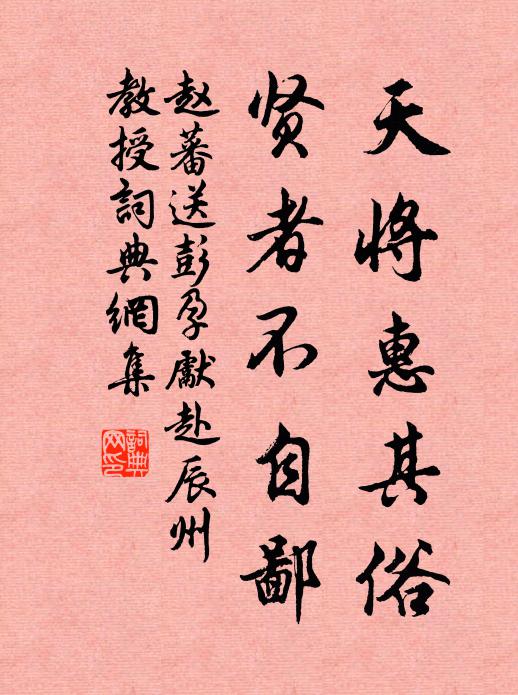 天将惠其俗
贤者不自鄙
赵蕃送彭孕獻赴辰州
教授詞典網集
詞典
网印